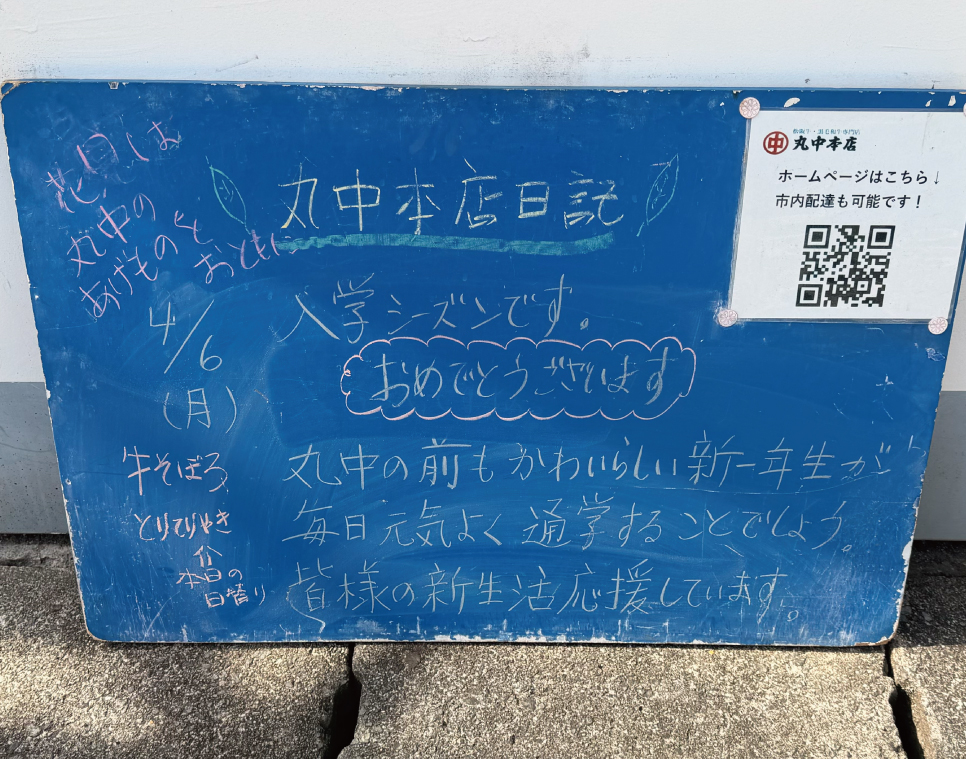 花見には
丸中の
あげものを
おともに
丸中本店日記
4/6
(月)
入学シーズンです。
おめでとうございます
丸中の前もかわいらしい新一年生が
毎日元気よく通学することでしょう。
皆様の新生活応援しています。
牛そぼろ
とりてりやき
本日の
日替り
丸中本店
ホームページはこちら↓
市内配達も可能です!